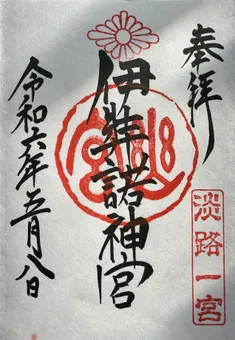 奉拝
伊弉諾神宮
淡路一宮
令和六年五月八日